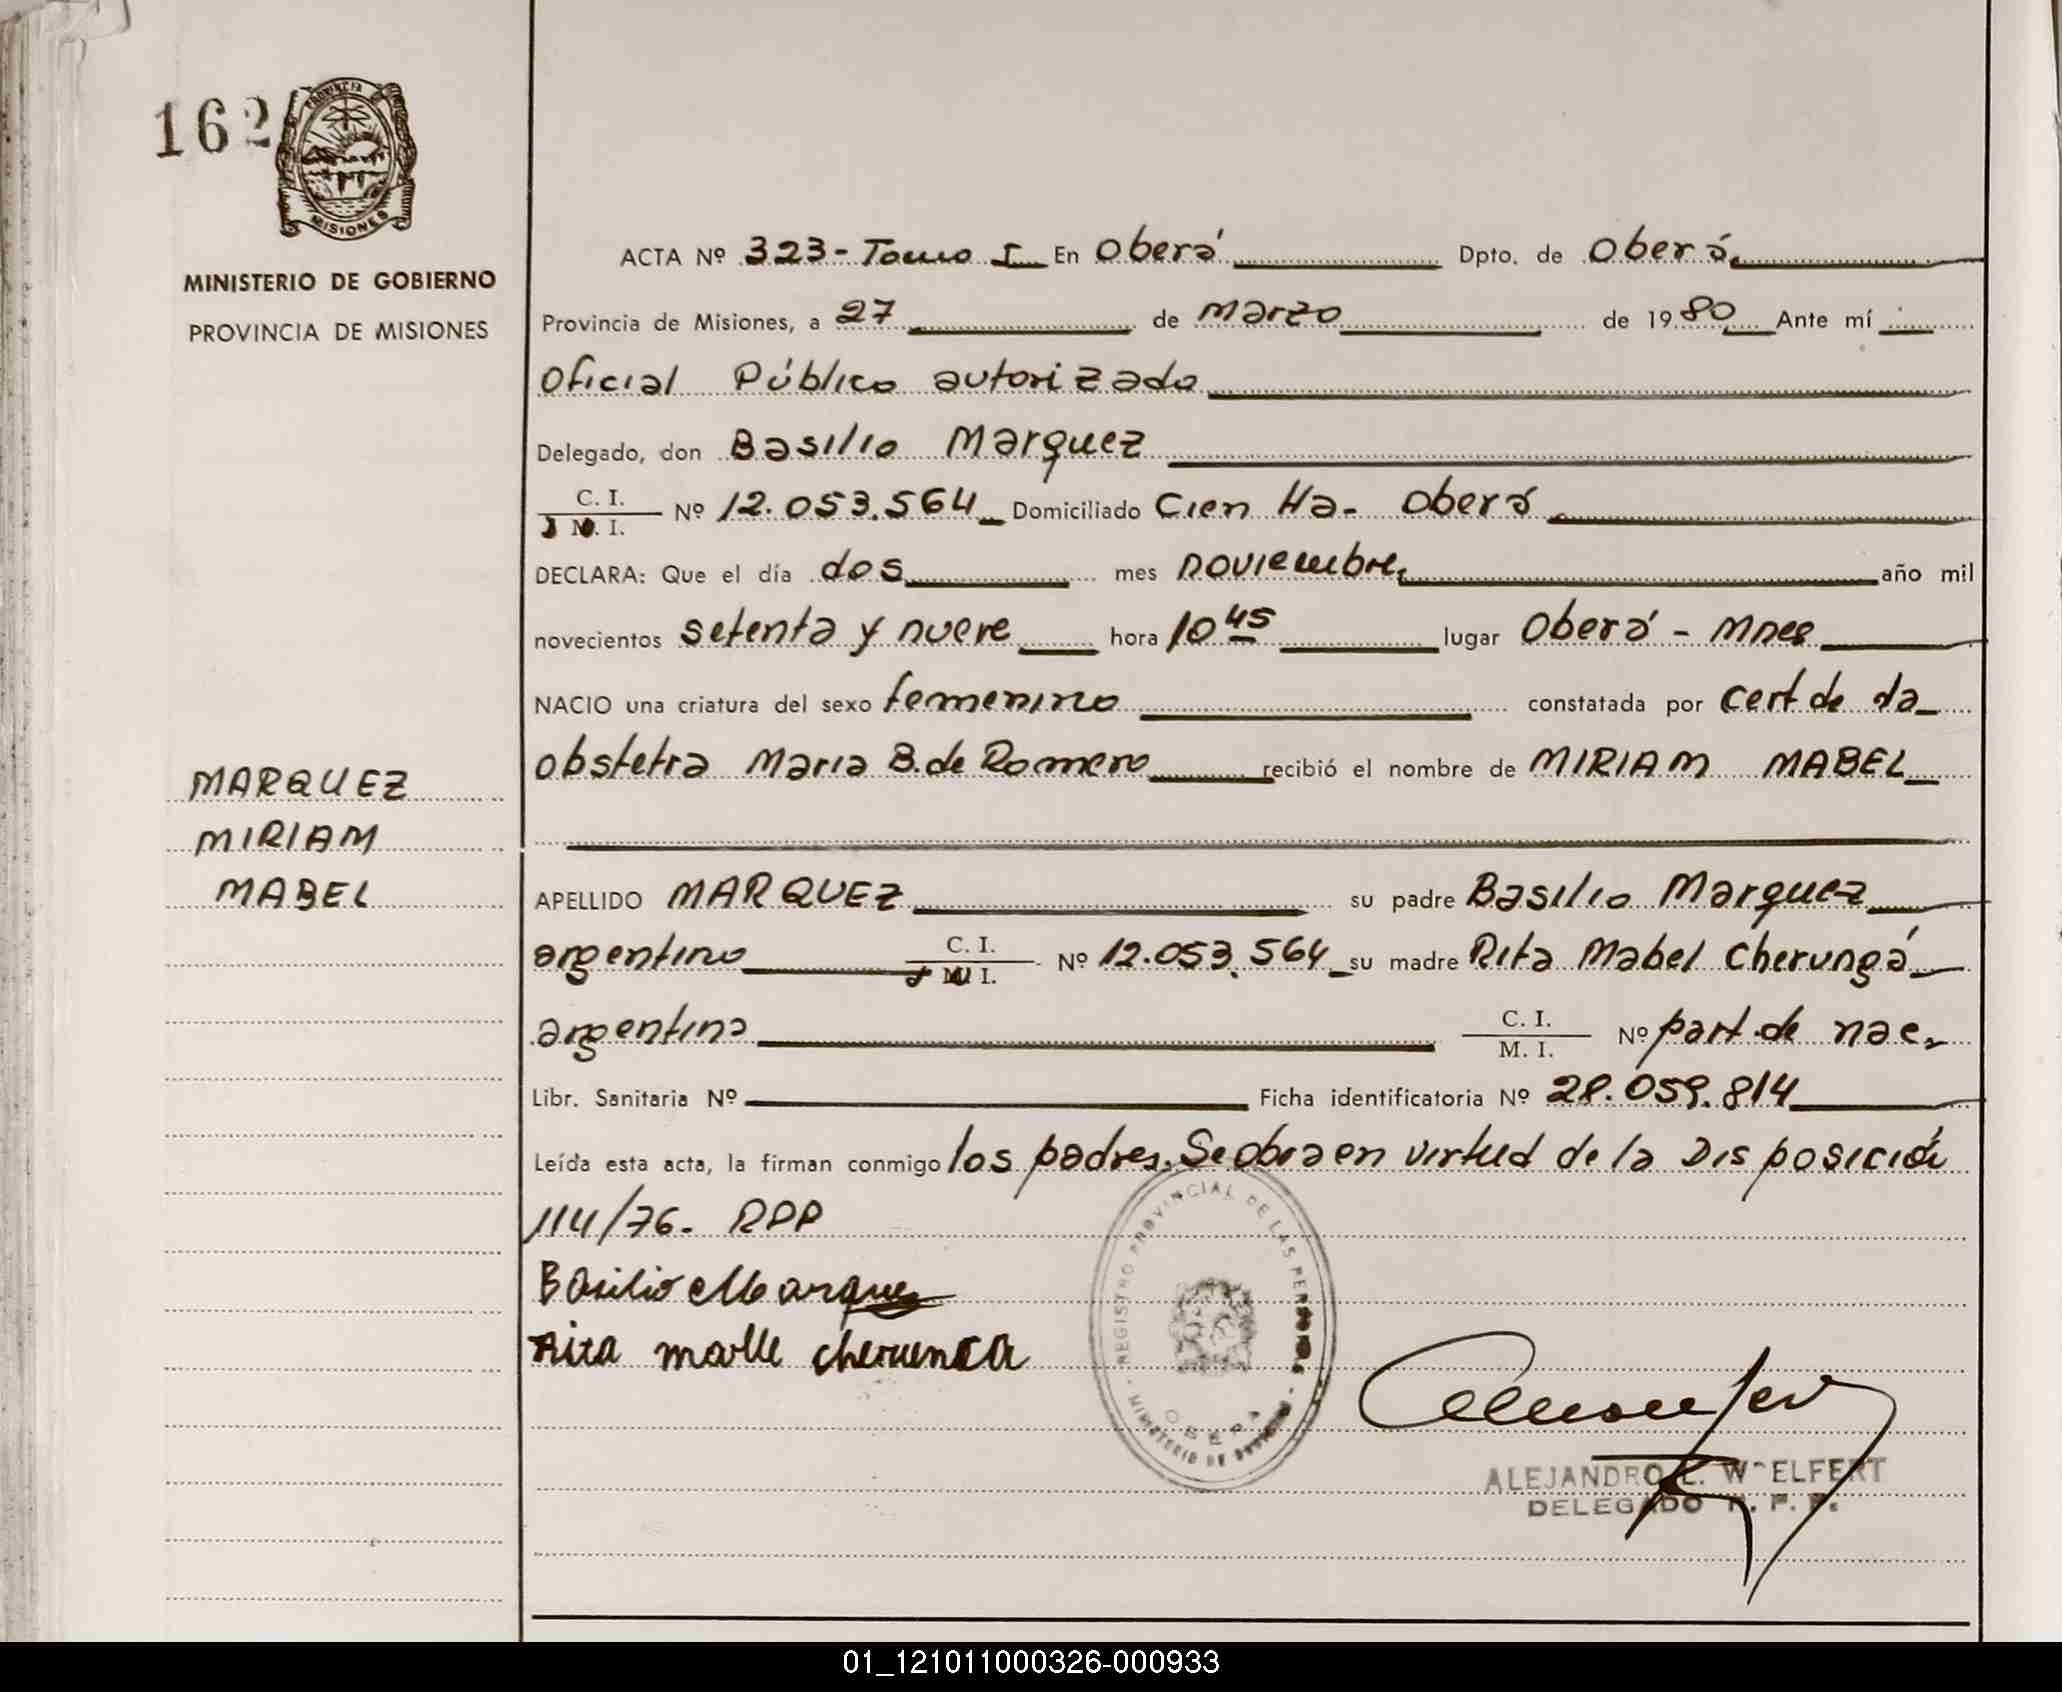 162
PROVINCIA
MISIONES
MINISTERIO DE GOBIERNO
PROVINCIA DE MISIONES
MARQUEZ
MIRIAM
MABEL
ACTA Nº 323-Tomo I En Oberá Dpto. de Oberá
Provincia de Misiones, a 27 de marzo de 1980 Ante mí
Oficial Público autorizado
Delegado, don Basilio Marquez
C. I.
M. I. Nº 12.053.564 Domiciliado Cien Ha- Oberá
DECLARA: Que el día dos mes noviembre año mil
novecientos setenta y nueve hora 10 45 lugar Oberá - Mnes
NACIO una criatura del sexo femenino constatada por cert de la
obstetra Maria B. de Romero recibió el nombre de MIRIAM MABEL
APELLIDO MARQUEZ su padre Basilio Marquez
argentino C. I. M. I. Nº 12.053.564 su madre Rita Mabel Cherungá
argentina C. I. M. I. Nº part. de nac.
Libr. Sanitaria Nº Ficha identificatoria Nº 28.059.814
Leída esta acta, la firman conmigo los padres. Se obra en virtud de la Disposición
114/76. RPP
Basilio Marquez
Rita
REGISTRO PROVINCIAL DE LAS PERSONAS
MINISTERIO DE GOBIERNO
OBERA
ALEJANDRO L. WOELFERT
DELEGADO R. P. P.
01_121011000326-000933